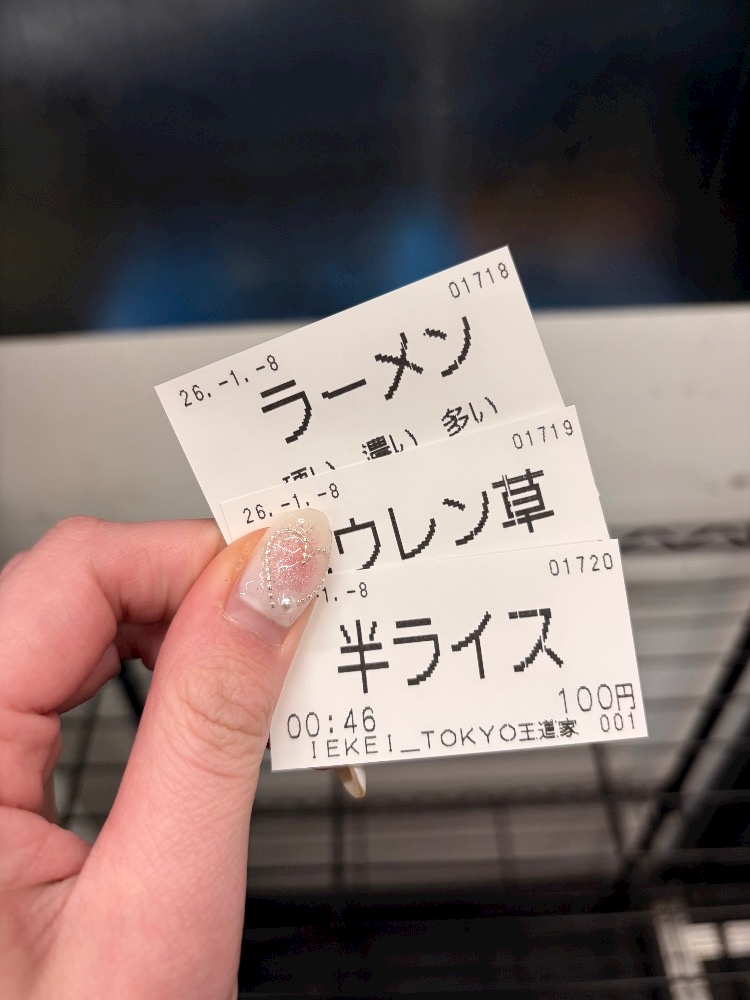 01718
26.-1.-8
ラーメン
濃い 多い
01719
26.-1.-8
ウレン草
01720
1.-8
半ライス
00:46 100円
IEKEI_TOKYO王道家 001